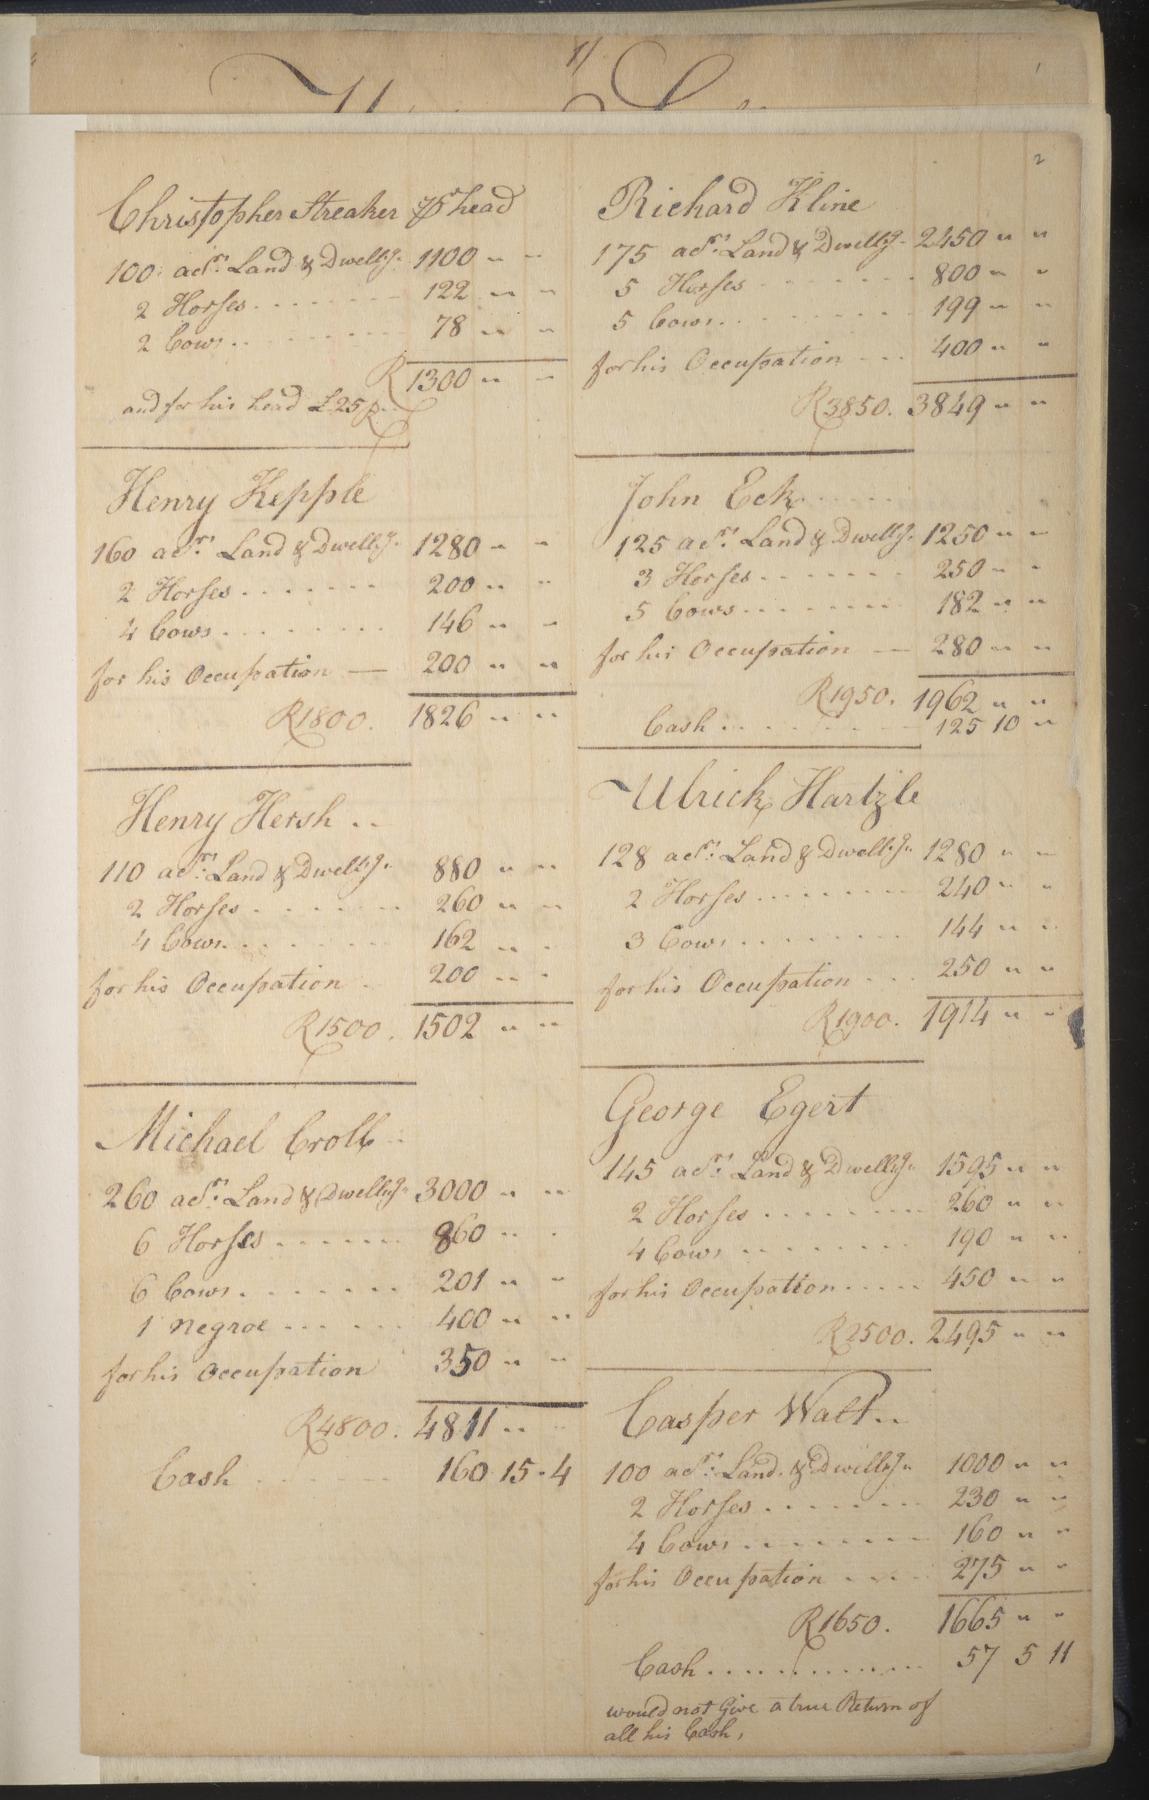 2
Christopher Streaker pr head
100 acrs. Land & Dwellg. 1100 " "
2 Horses 122 " "
2 Cows 78 " "
R 1300 " "
and for his head £25 p.
Henry Kepple
160 acrs. Land & Dwellg. 1280 " "
2 Horses 200 " "
4 Cows 146 " "
for his Occupation 200 " "
R1800. 1826 " "
Henry Hersh
110 acrs. Land & Dwellg. 880 " "
2 Horses 260 " "
4 Cows 162 " "
for his Occupation 200 " "
R1500. 1502 " "
Michael Croll
260 acrs. Land & Dwellg. 3000 " "
6 Horses 860 " "
6 Cows 201 " "
1 Negroe 400 " "
for his Occupation 350 " "
R4800. 4811 " "
Cash 160 15 4
Richard Kline
175 acrs. Land & Dwellg. 2450 " "
5 Horses 800 " "
5 Cows 199 " "
for his Occupation 400 " "
R3850. 3849 " "
John Eck
125 acrs. Land & Dwellg. 1250 " "
3 Horses 250 " "
5 Cows 182 " "
for his Occupation 280 " "
R1950. 1962 " "
Cash 125 10 "
Ulrick Hartzle
128 acrs. Land & Dwellg. 1280 " "
2 Horses 240 " "
3 Cows 144 " "
for his Occupation 250 " "
R1900. 1914 " "
George Egert
145 acrs. Land & Dwellg. 1595 " "
2 Horses 260 " "
4 Cows 190 " "
for his Occupation 450 " "
R2500. 2495 " "
Casper Walt
100 acrs. Land. & Dwellg. 1000 " "
2 Horses 230 " "
4 Cows 160 " "
for his Occupation 275 " "
R1650. 1665 " "
Cash 57 5 11
would not Give a true Return of
all his Cash,